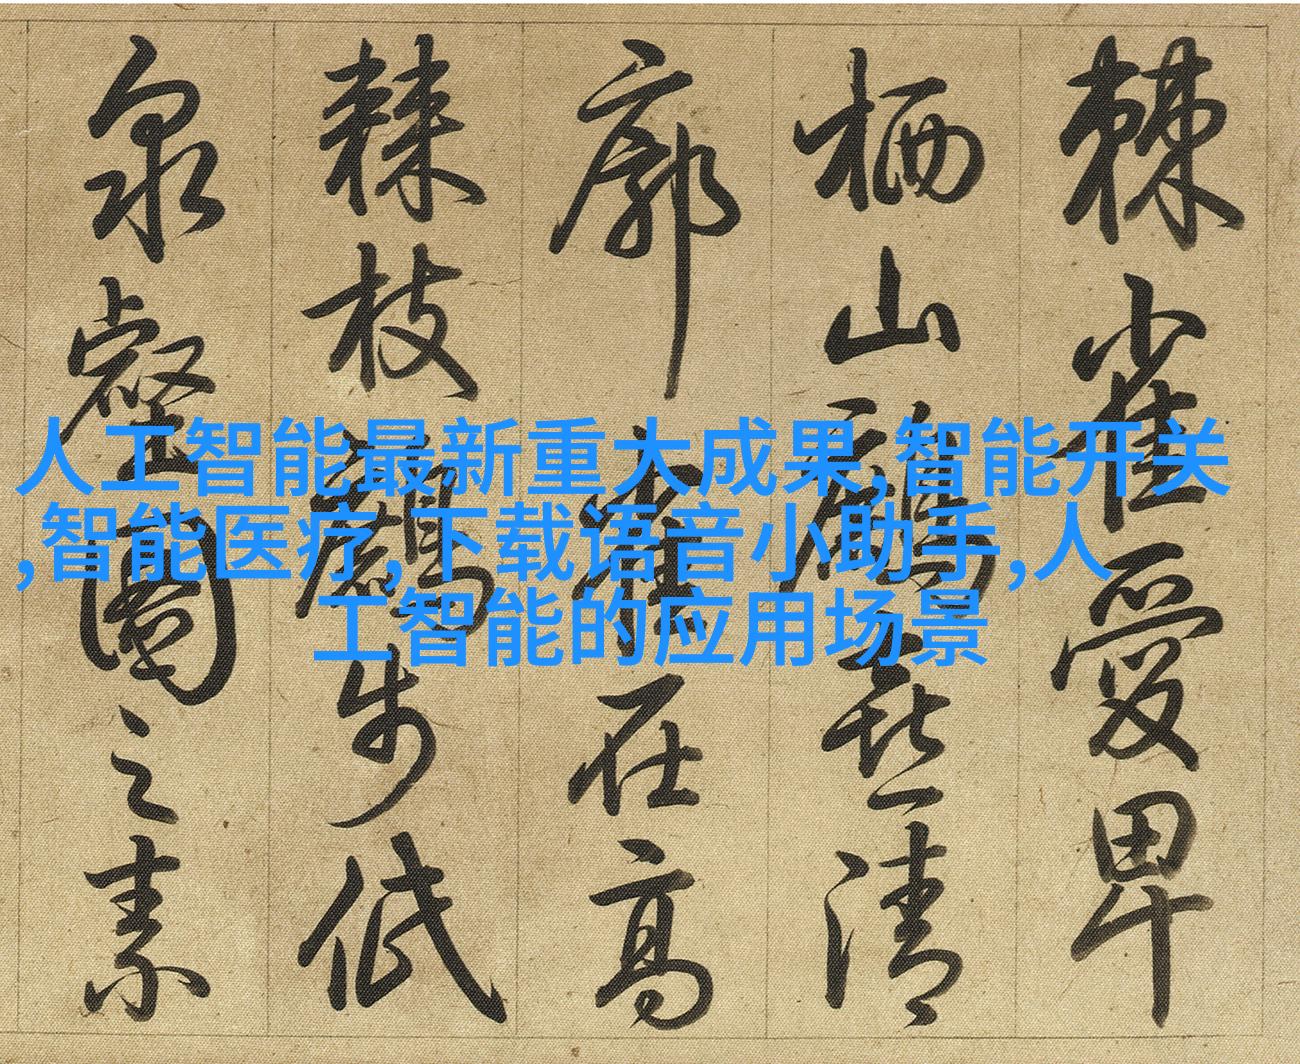 棘雀愛卑
栖山鷓喜清
廓雀在高
棘枝鷓步低
泉壑圖之素
人工智能最新重大成果,智能开关
,智能医疗,下载语音小助手,人
工智能的应用场景